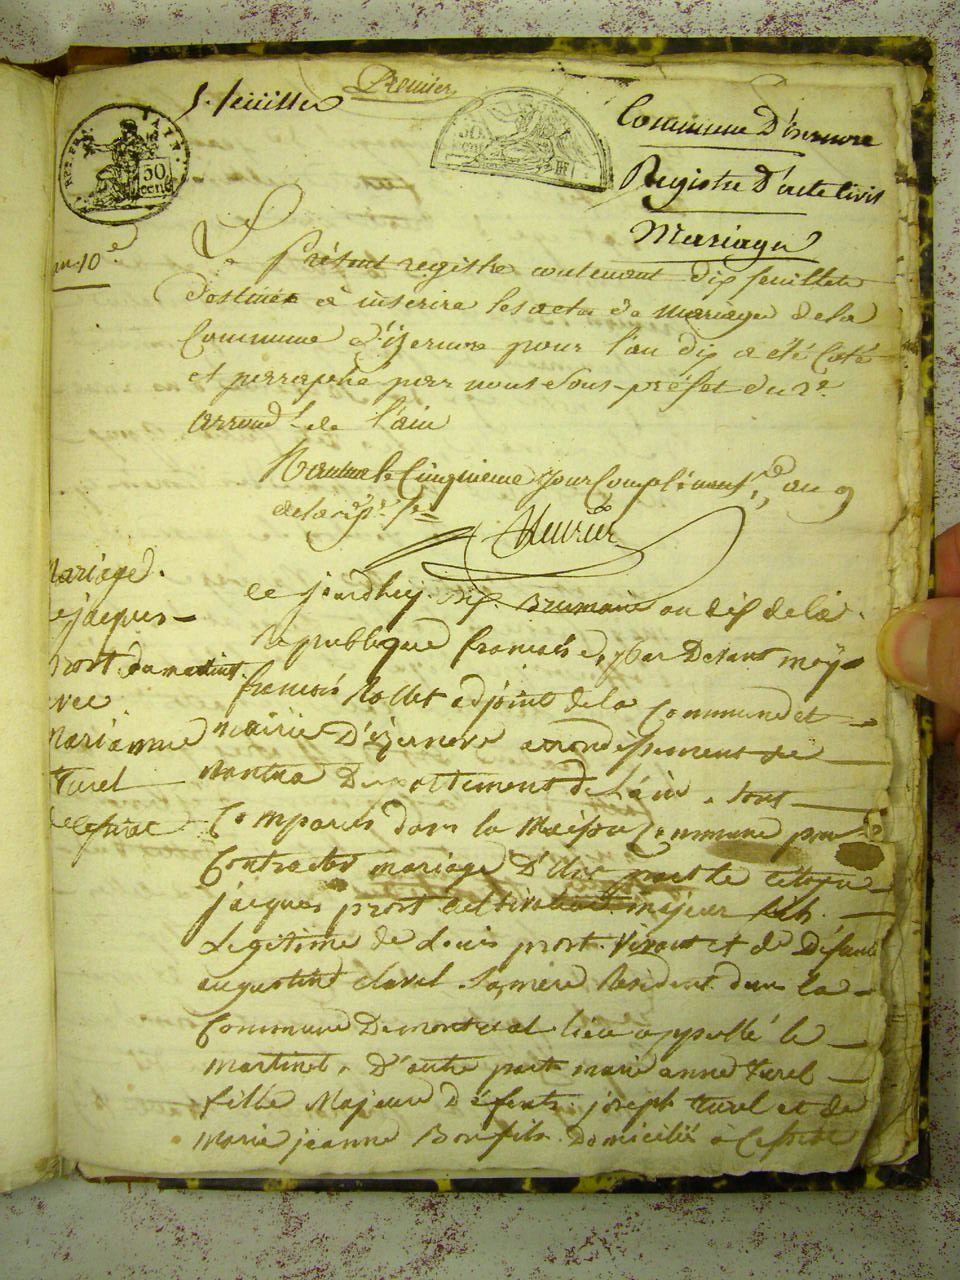 1. feuillet
Premier
REP. FRA.
50
cent
Commune D'izernore
Registre D'acte Civil
Mariages
an. 10.e
Le Présent registre contenant dix feuillets
destinés à inscrire les actes de Mariages de la
Commune d'izernore pour l'an dix a été Coté
et parraphé par nous Sous-préfet du
arrond.t de l'ain
Nantua le Cinquieme Jour Complément.re an 9
de la rép.
mariage
de jacques
prort du martinet
avec
marianne
turel
Ce jourdhuy dix Brumaire an dix de la
République française, par Devant moy
francois Rollet adjoint de la Commune et
mairie D'izernore arrondissement de
nantua Departement de L'ain, sont
Comparus dans la Maison Commune pour
Contracter mariage D'une part le citoyen
jacques prort majeur fils
Legitime de Louis prort vivant et de Défunte
augustine clavel Sa mère Resident dans la
Commune De lieu appellé le
martinet, D'autre part marie anne turel
fille Majeure Défents joseph turel et de
marie jeanne Bonfils Domicilié à